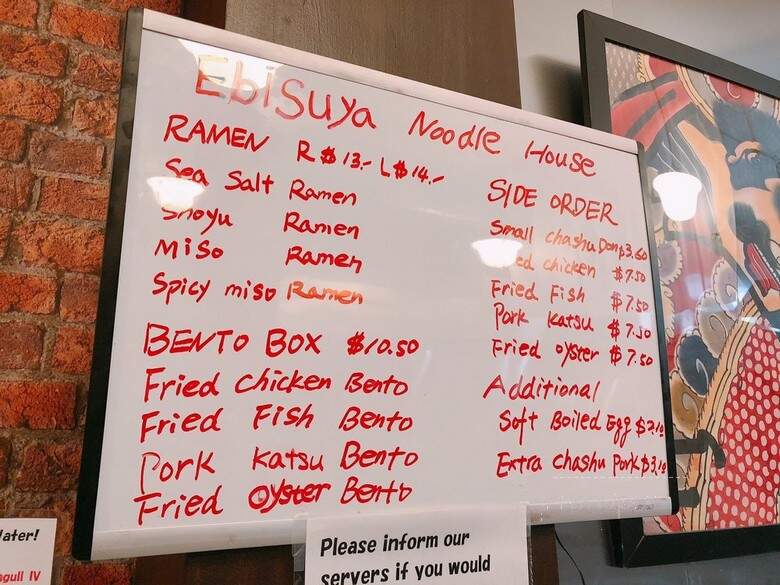 Ebisuya Noodle House
RAMEN R $13.- L $14.-
Sea Salt Ramen
Shoyu Ramen
Miso Ramen
Spicy miso Ramen
BENTO BOX $10.50
Fried chicken Bento
Fried Fish Bento
Pork Katsu Bento
Fried Oyster Bento
SIDE ORDER
Small chashu Don $3.60
chicken $7.50
Fried Fish $7.50
Pork Katsu $7.50
Fried oyster $7.50
Additional
Soft Boiled Egg
Extra chashu Pork
Please inform our
servers if you would
later!
gull IV